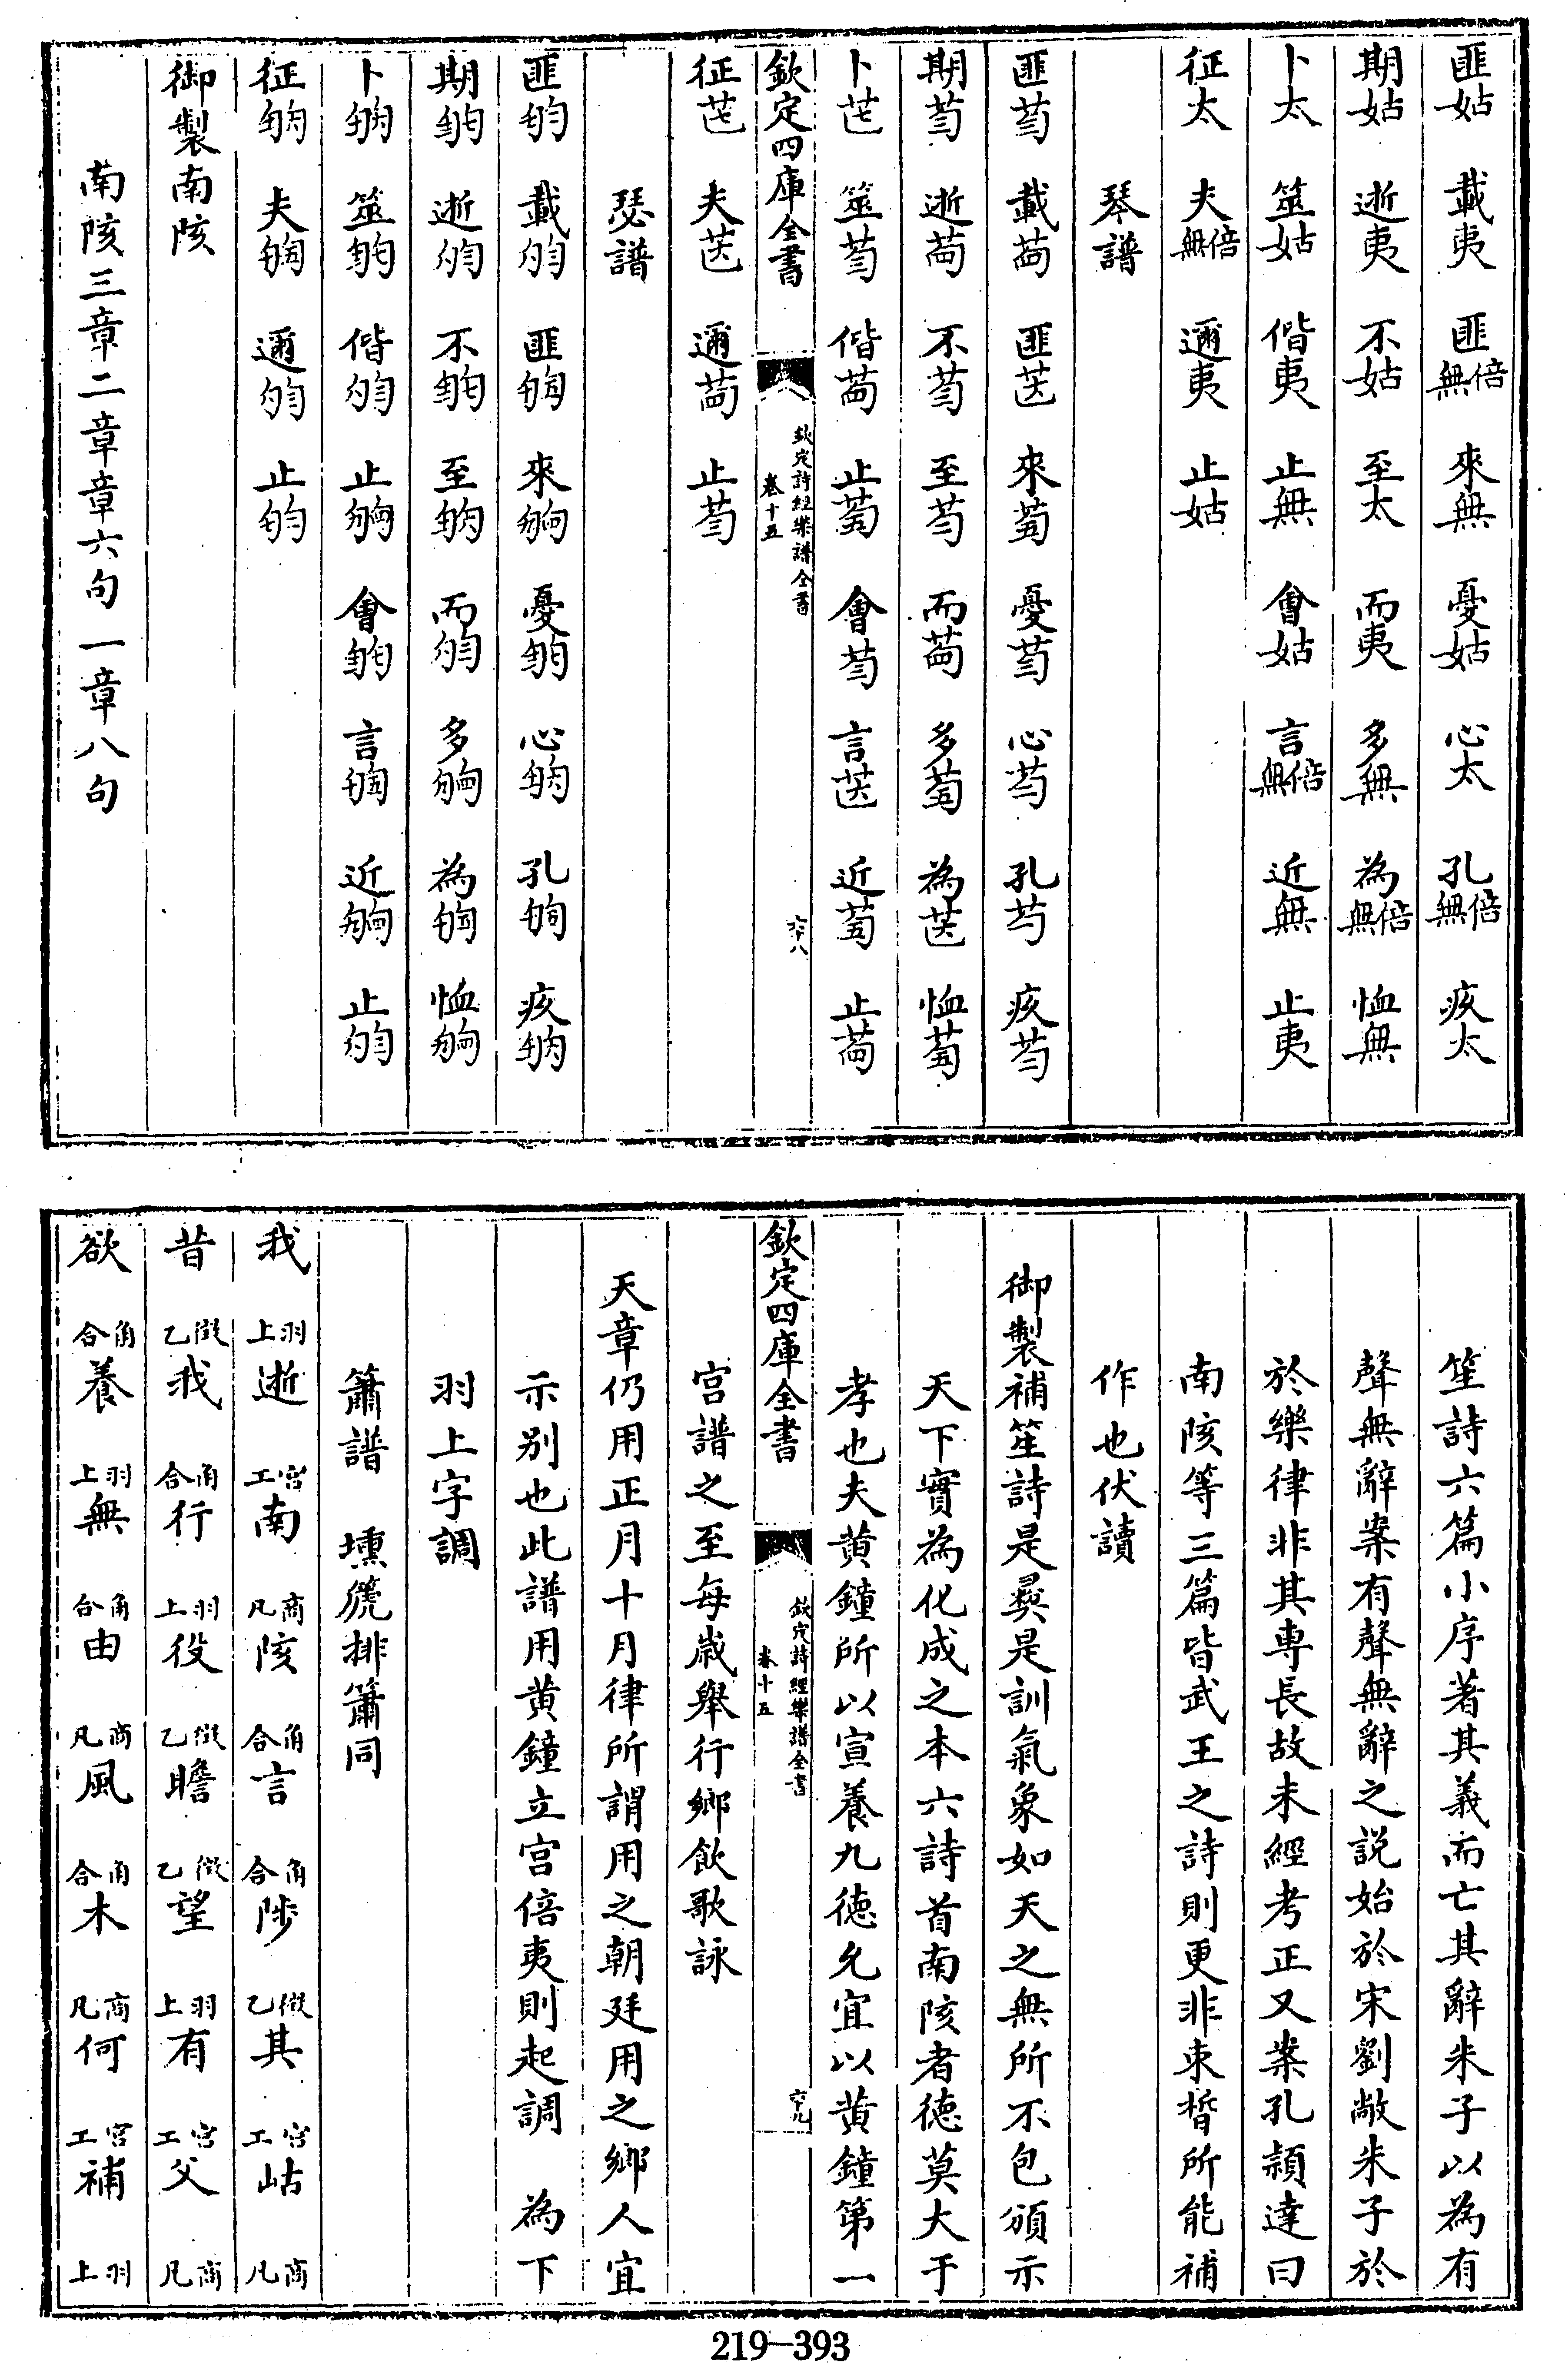 匪姑 載夷 匪倍無 來無 憂姑 心太 孔倍無 疚太
期姑 逝夷 不姑 至太 而夷 多無 為倍無 恤無
卜太 筮姑 偕夷 止無 會姑 言倍無 近無 止夷
征太 夫倍無 邇夷 止姑
琴譜
匪 載 匪 來 憂 心 孔 疚
期 逝 不 至 而 多 為 恤
卜 筮 偕 止 會 言 近 止
欽定四庫全書 欽定詩經樂譜全書 卷十五 六十八
征 夫 邇 止
瑟譜
匪 載 匪 來 憂 心 孔 疚
期 逝 不 至 而 多 為 恤
卜 筮 偕 止 會 言 近 止
征 夫 邇 止
御製南陔
南陔三章二章章六句一章八句
笙詩六篇小序著其義而亡其辭朱子以為有
聲無辭案有聲無辭之説始於宋劉敞朱子於
於樂律非其専長故未經考正又案孔頴達曰
南陔等三篇皆武王之詩則更非束晳所能補
作也伏讀
御製補笙詩是彛是訓氣象如天之無所不包頒示
天下實為化成之本六詩首南陔者德莫大于
孝也夫黄鐘所以宣養九德允宜以黄鐘第一
欽定四庫全書 欽定詩經樂譜全書 卷十五 六十九
宫譜之至每歳舉行鄉飲歌詠
天章仍用正月十月律所謂用之朝廷用之鄉人宜
示别也此譜用黄鐘立宫倍夷則起調 為下
羽上字調
簫譜 壎篪排簫同
我羽上 逝宫工 南商凡 陔角合 言角合 陟徵乙 其宫工 岵商凡
昔徵乙 我角合 行羽上 役徵乙 瞻徵乙 望羽上 有宫工 父商凡
欲角合 養羽上 無角合 由商凡 風角合 木商凡 何宫工 補羽上
219—393